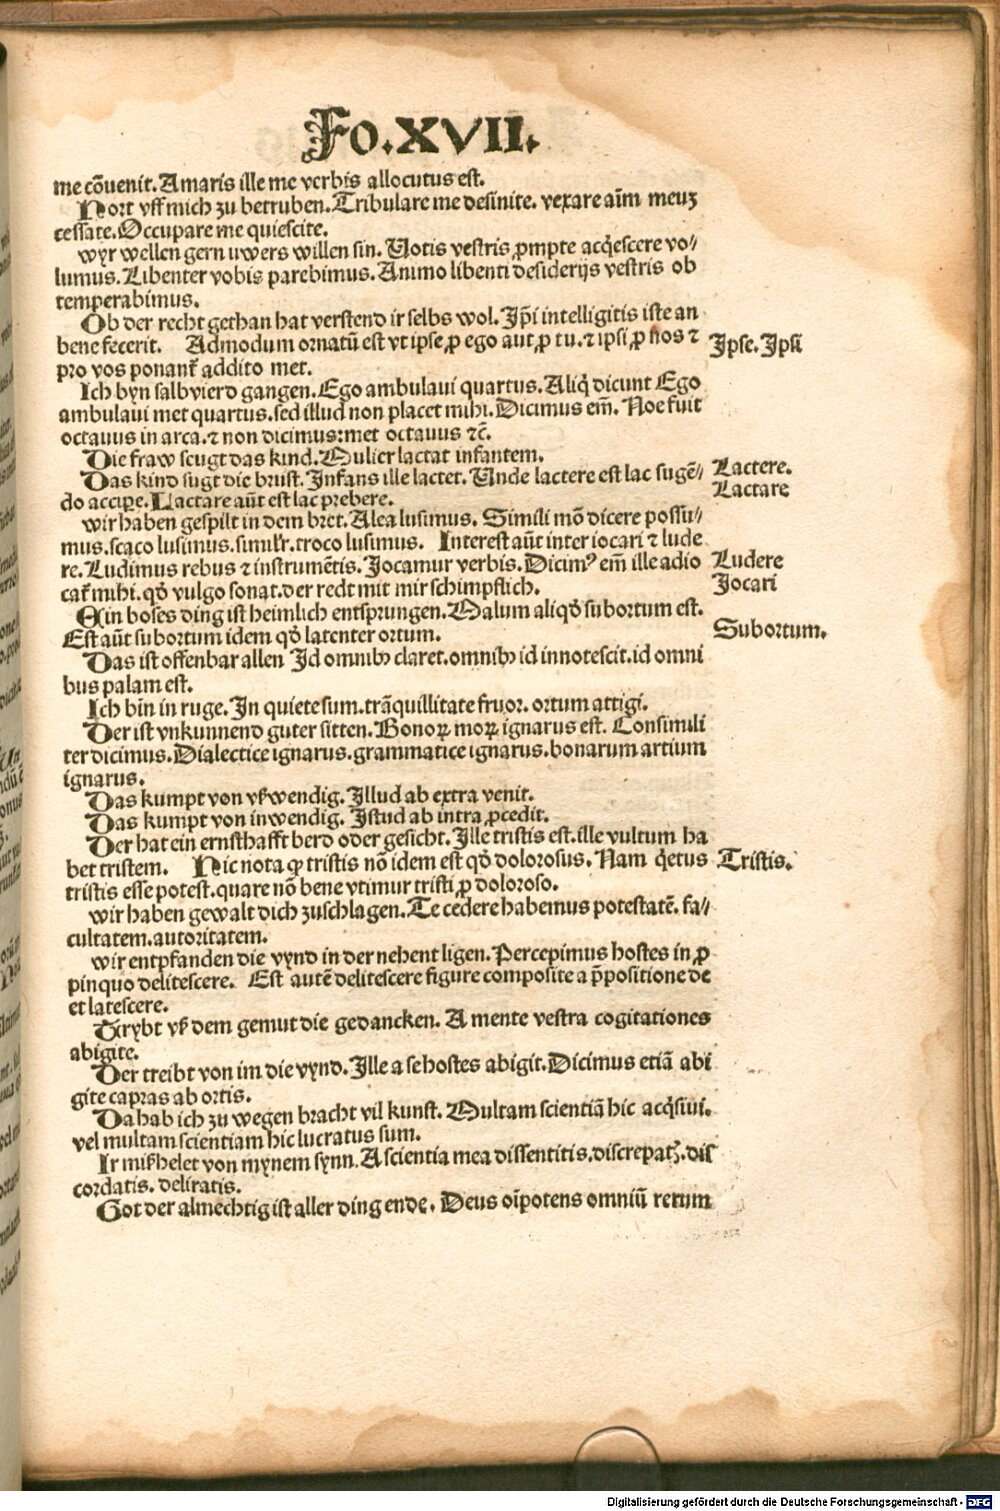 Fo.XVII.
me cõuenit. Amaris ille me verbis allocutus est.
Hort vff mich zu betruben. Tribulare me desinite. vexare aĩm meuʒ
cessate. Occupare me quiescite.
wyr wellen gern uwers willen sin. Votis vestris ꝓmpte acq̃escere vo⸗
lumus. Libenter vobis parebimus. Animo libenti desiderijs vestris ob
temperabimus.
Ob der recht gethan hat verstend ir selbs wol. Ip̃i intelligitis iste an
bene fecerit. Admodum ornatũ est vt ipse ꝓ ego aut ꝓ tu. ⁊ ipsi ꝓ nos ⁊
pro vos ponant᷑ addito met.
Ipse. Ipsi
Ich byn salb vierd gangen. Ego ambulaui quartus. Aliq̃ dicunt Ego
ambulaui met quartus. sed illud non placet mihi. Dicimus em̃. Noe fuit
octauus in arca. ⁊ non dicimus: met octauus ⁊c̃.
Die fraw seugt das kind. Mulier lactat infantem.
Das kind sugt die brust. Infans ille lactet. Unde lactere est lac sugẽ⸗
do accipe. Lactare aũt est lac prebere.
Lactere.
Lactare
wir haben gespilt in dem bret. Alea lusimus. Simili mõ dicere possu⸗
mus. scaco lusimus. simil᷑r. troco lusimus. Interest aũt inter iocari ⁊ lude
re. Ludimus rebus ⁊ instrumẽtis. Jocamur verbis. Dicimꝰ em̃ ille adio
cat᷑ mihi. qð vulgo sonat. der redt mit mir schimpflich.
Ludere
Jocari
Ein boses ding ist heimlich entsprungen. Malum aliqð subortum est.
Est aũt subortum idem qð latenter ortum.
Subortum.
Das ist offenbar allen Id omnibꝰ claret. omnibꝰ id innotescit. id omni
bus palam est.
Ich bin in ruge. In quiete sum. trãquillitate fruor. ortum attigi.
Der ist vnkunnend guter sitten. Bonoꝝ moꝝ ignarus est. Consimili
ter dicimus. Dialectice ignarus. grammatice ignarus. bonarum artium
ignarus.
Das kumpt von vßwendig. Illud ab extra venit.
Das kumpt von inwendig. Istud ab intra ꝓcedit.
Der hat ein ernsthafft berd oder gesicht. Ille tristis est. ille vultum ha
bet tristem. Hic nota ꝙ tristis nõ idem est qð dolorosus. Nam q̃etus
tristis esse potest. quare nõ bene vtimur tristi ꝓ doloroso.
Tristis.
wir haben gewalt dich zuschlagen. Te cedere habemus potestatẽ. fa⸗
cultatem. autoritatem.
wir entpfanden die vynd in der nehent ligen. Percepimus hostes in ꝓ
pinquo delitescere. Est autẽ delitescere figure composite a p̃positione de
et latescere.
Trybt vß dem gemut die gedancken. A mente vestra cogitationes
abigite.
Der treibt von im die vynd. Ille a se hostes abigit. Dicimus etiã abi
gite capras ab ortis.
Da hab ich zu wegen bracht vil kunst. Multam scientiã hic acq̃siui.
vel multam scientiam hic lucratus sum.
Ir mißhelet von mynem synn. A scientia mea dissentitis. discrepatꝭ. dis
cordatis. deliratis.
Got der almechtig ist aller ding ende. Deus oĩpotens omniũ rerum
Digitalisierung gefördert durch die Deutsche Forschungsgemeinschaft - DFG